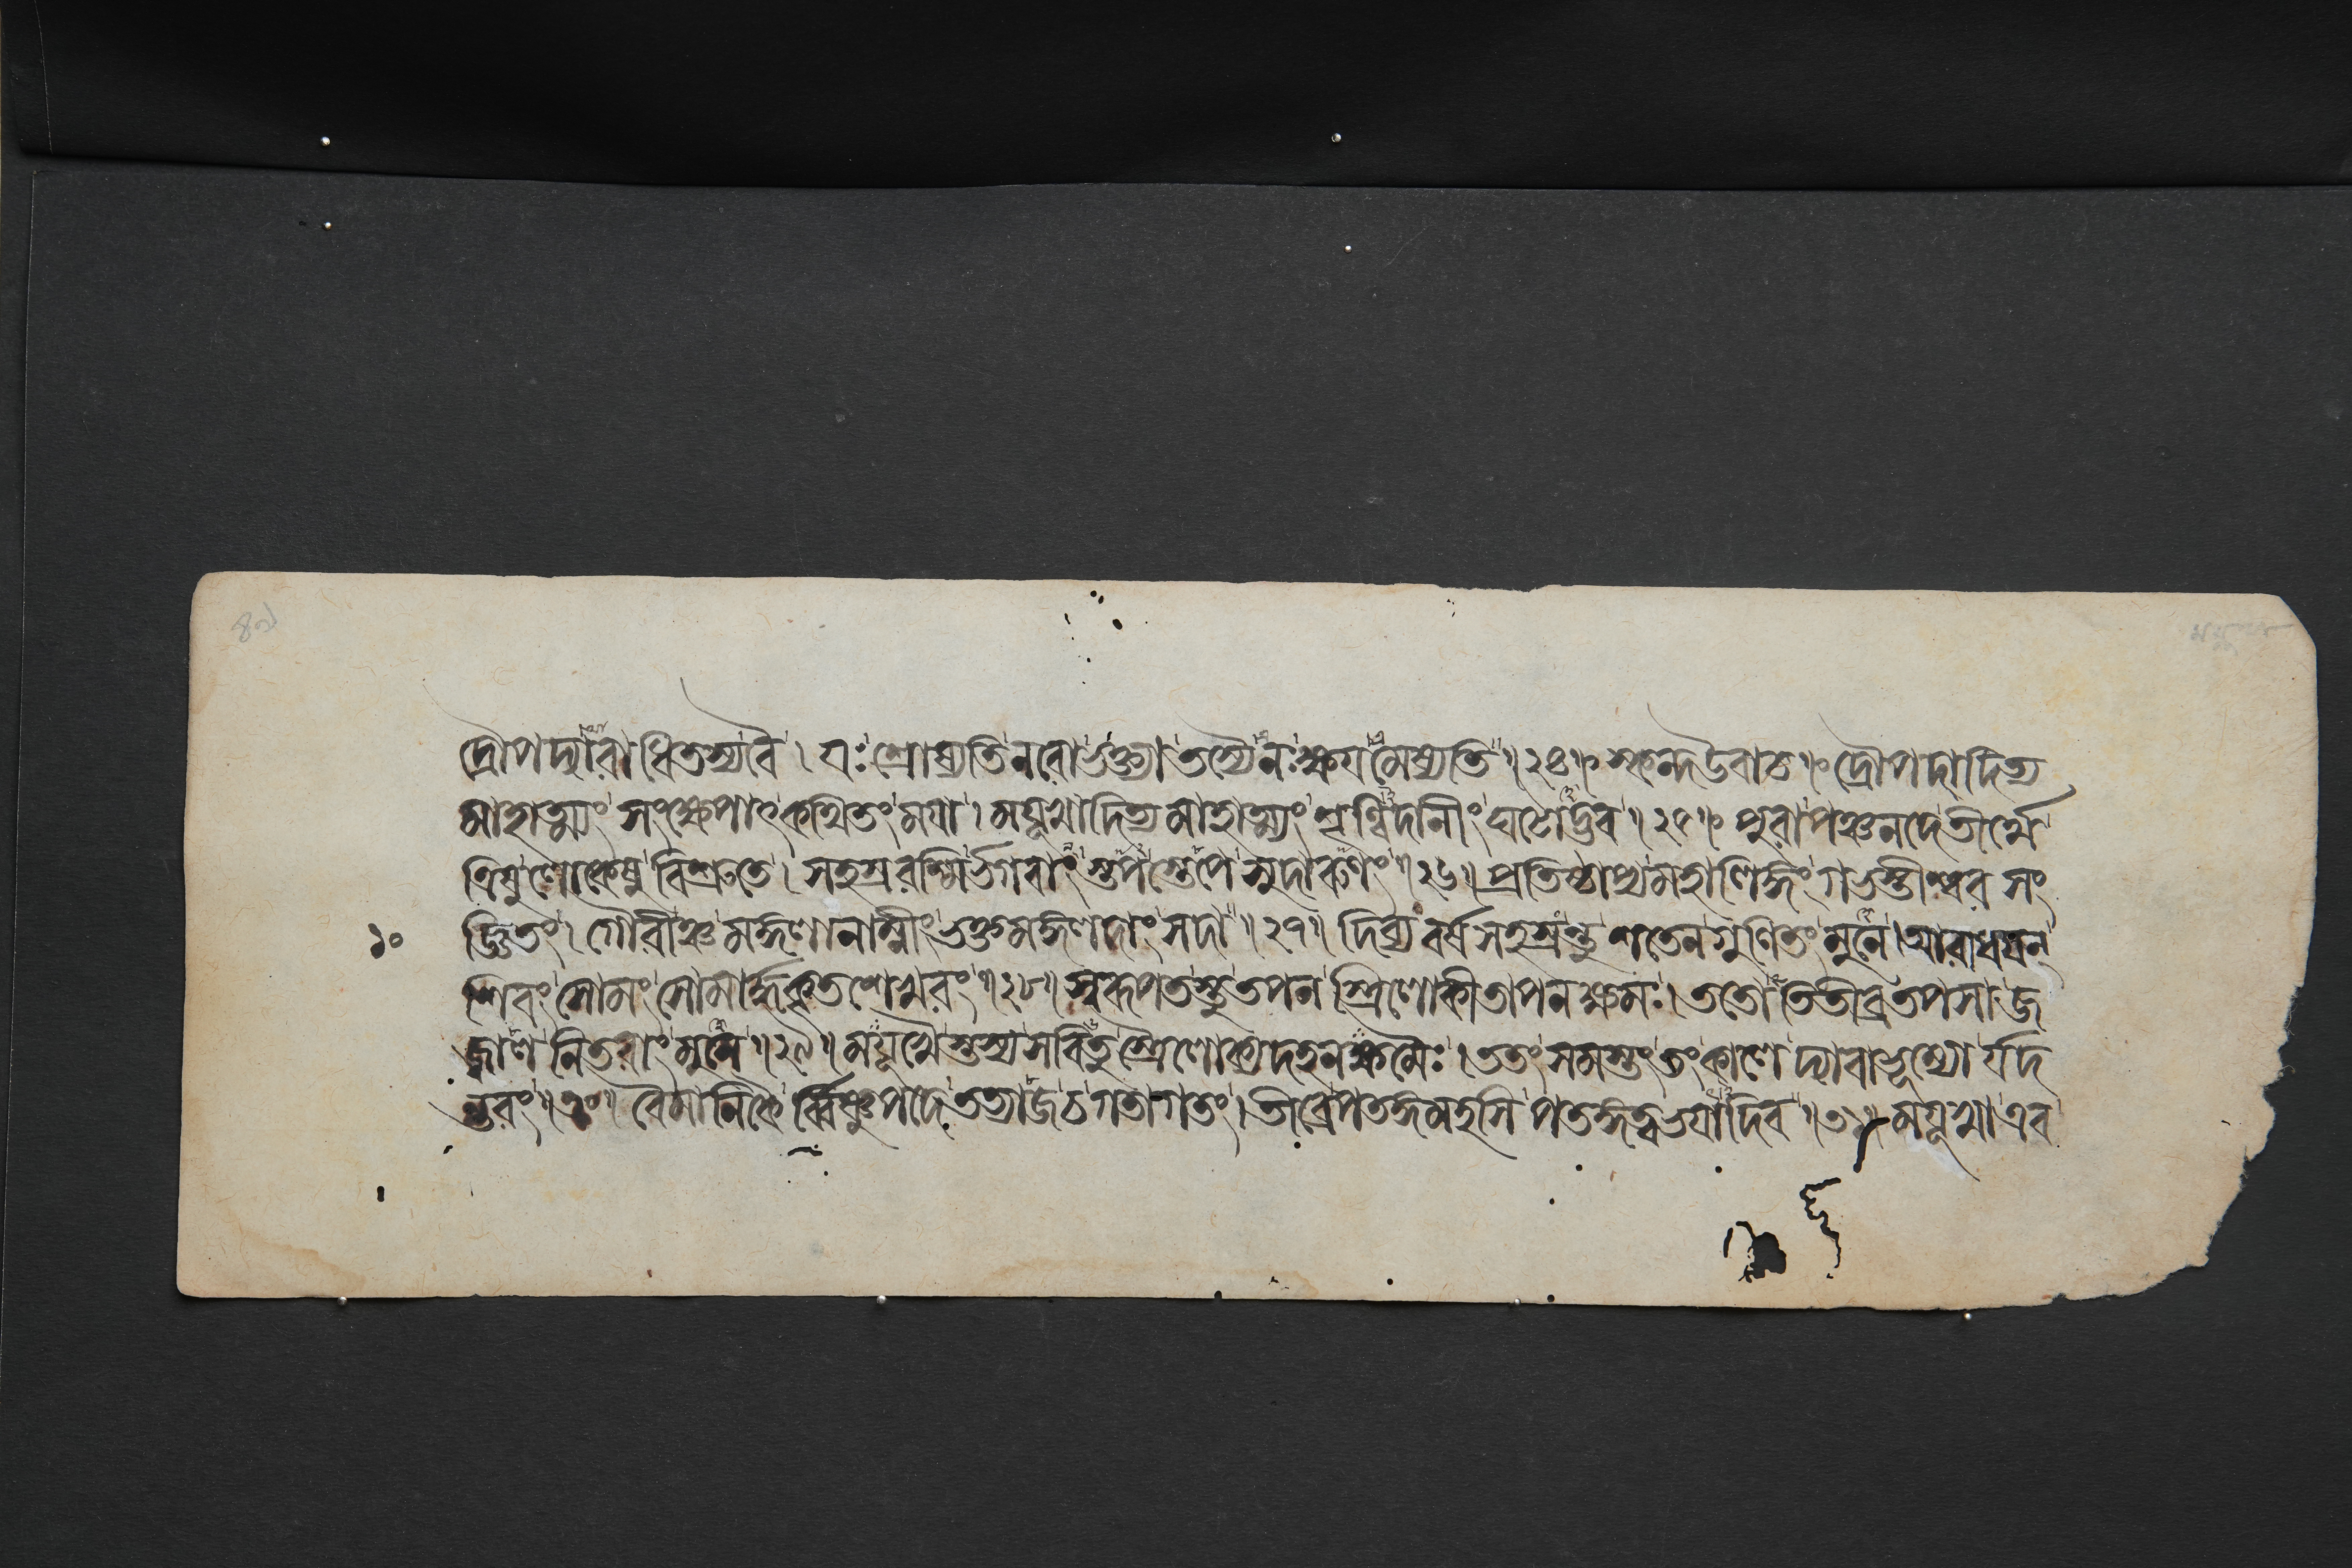 দ্রৌপদ্যারাধিতস্যবৈ। যঃ শ্রোষ্যতি নরো ভক্ত্যা তস্যৈনঃ ক্ষয়মেষ্যতি॥ ২৪॥ স্কন্দ উবাচ॥ দ্রৌপদাদিত্য
মাহাত্ম্যং সংক্ষেপাৎ কথিতং ময়া। ময়ূখাদিত্য মাহাত্ম্যং শৃণ্বিদানীং ঘটোদ্ভব॥ ২৫॥ পুরা পঞ্চনদে তীর্থে
ত্রিষু লোকেষু বিশ্রুতে। সহস্র রশ্মির্ভগবাং স্তপস্তেপে সুদারুণং॥ ২৬॥ প্রতিষ্ঠাপ্য মহালিঙ্গং গভস্তীশ্বর সং
১০ জ্ঞিতং। গৌরীঞ্চ মঙ্গলানাম্নীং ভক্তমঙ্গলদাং সদা॥ ২৭॥ দিব্য বর্ষ সহস্রন্তু শতেন গুণিতং মুনে। আরাধয়ন্
শিবং সোমং সোমার্দ্ধকৃতশেখরং॥ ২৮॥ স্বরূপতস্তু তপন স্ত্রিলোকীতাপনক্ষমঃ। ততো তিতীব্র তপসা জ
জ্বাল নিতরাং মুনে॥ ২৯॥ ময়ূখৈস্তস্য সবিতু স্ত্রৈলোক্যদহনক্ষমৈঃ। ততং সমস্তং তৎকালে দ্যাবাভূম্যো র্যদ
ন্তরং॥ ৩০॥ বৈমানিকৈ র্ব্বিষ্ণুপদে তত্যজে চ গতাগতং। তীব্রে পতঙ্গমহসি পতঙ্গত্বভয়াদিব॥ ৩১॥ ময়ূখা এব